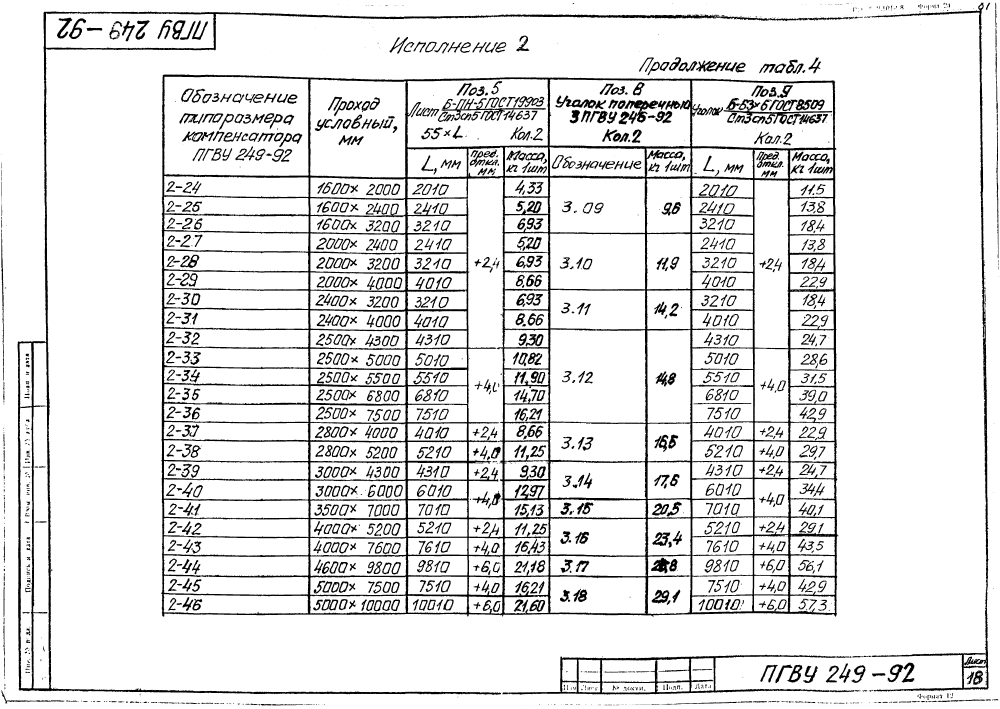 ПГВУ 249-92
91
Исполнение 2
Продолжение табл.4
Обозначение типоразмера компенсатора ПГВУ 249-92 | Проход условный, мм | Поз.5 Лист Б-ПН-5 ГОСТ19903 / Ст3сп5 ГОСТ14637 55×L Кол.2 | Поз. 8 Уголок поперечный 3 ПГВУ 246-92 Кол.2 | Поз.9 Уголок Б-63×6 ГОСТ8509 / Ст3сп5 ГОСТ14637 Кол.2
L, мм | Пред. откл. мм | Масса, кг 1шт | Обозначение | Масса, кг 1шт | L, мм | Пред. откл. мм | Масса, кг 1шт
2-24 1600× 2000 2010 4,33 2010 11.5
2-25 1600× 2400 2410 5,20 3.09 9,6 2410 13,8
2-26 1600× 3200 3210 6,93 3210 18,4
2-27 2000× 2400 2410 5,20 2410 13,8
2-28 2000× 3200 3210 +2,4 6,93 3.10 11,9 3210 +2,4 18,4
2-29 2000× 4000 4010 8,66 4010 22,9
2-30 2400× 3200 3210 6,93 3.11 14,2 3210 18,4
2-31 2400× 4000 4010 8,66 4010 22,9
2-32 2500× 4300 4310 9,30 4310 24,7
2-33 2500× 5000 5010 10,82 5010 28,6
2-34 2500× 5500 5510 +4,0 11,90 3.12 14,8 5510 +4,0 31,5
2-35 2500× 6800 6810 14,70 6810 39,0
2-36 2500× 7500 7510 16,21 7510 42,9
2-37 2800× 4000 4010 +2,4 8,66 3.13 16,5 4010 +2,4 22,9
2-38 2800× 5200 5210 +4,0 11,25 5210 +4,0 29,7
2-39 3000× 4300 4310 +2,4 9,30 3.14 17,6 4310 +2,4 24,7
2-40 3000× 6000 6010 +4,0 12,97 6010 +4,0 34,4
2-41 3500× 7000 7010 15,13 3.15 20,5 7010 40,1
2-42 4000× 5200 5210 +2,4 11,25 3.16 23,4 5210 +2,4 29,1
2-43 4000× 7600 7610 +4,0 16,43 7610 +4,0 43,5
2-44 4600× 9800 9810 +6,0 21,18 3.17 9810 +6,0 56,1
2-45 5000× 7500 7510 +4,0 16,21 3.18 29,1 7510 +4,0 42,9
2-46 5000×10000 10010 +6,0 21,60 10010 +6,0 57,3
ПГВУ 249-92
Лист
18
Изм Лист № докум. Подп. Дата
Формат 12